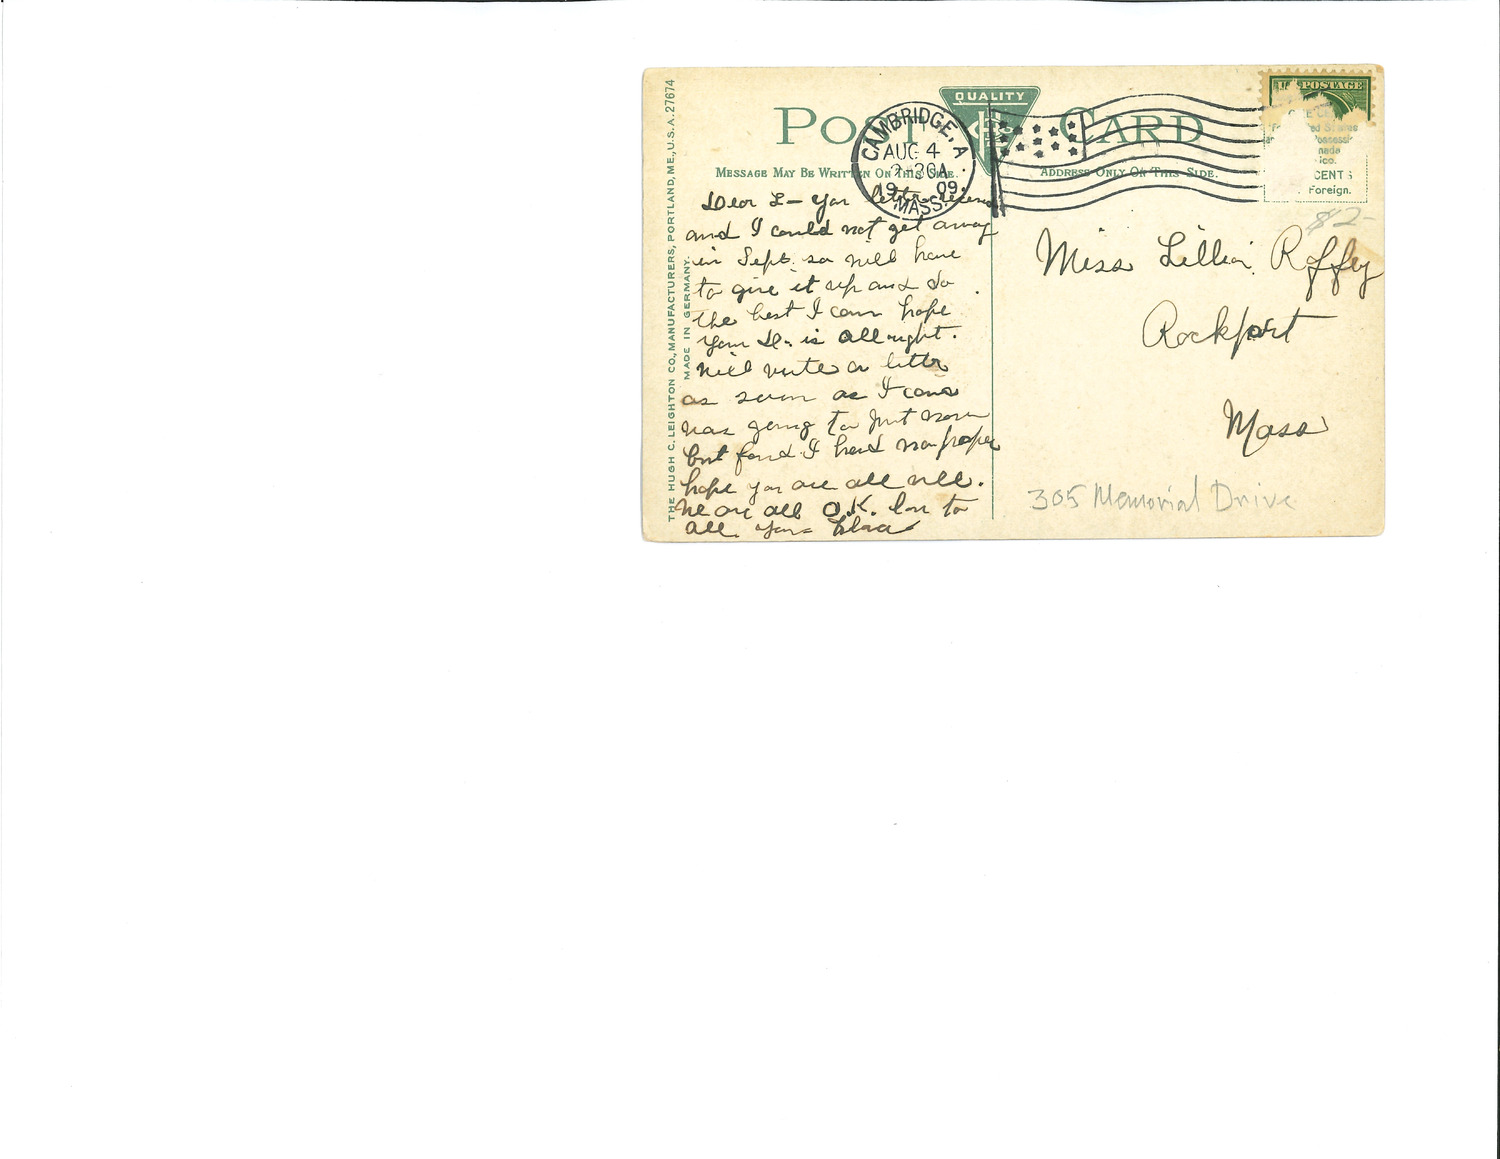 THE HUGH C. LEIGHTON CO., MANUFACTURERS, PORTLAND, ME., U.S.A. 27674
MADE IN GERMANY.
POST CARD
QUALITY
MESSAGE MAY BE WRITTEN ON THIS SIDE.
ADDRESS ONLY ON THIS SIDE.
CAMBRIDGE, A
AUG 4
30A
19 09
MASS.
U.S. POSTAGE
CENTS
Foreign.
$2-
Dear L— Your letter received
and I could not get away
in Sept. so will have
to give it up and do
the best I can hope
your is all right.
will write a letter
as soon as I can
was going to just now
but found I had no paper
hope you are all well.
We are all O.K. love to
all. Your Clara
Miss Lillian Roffey
Rockport
Mass
305 Memorial Drive